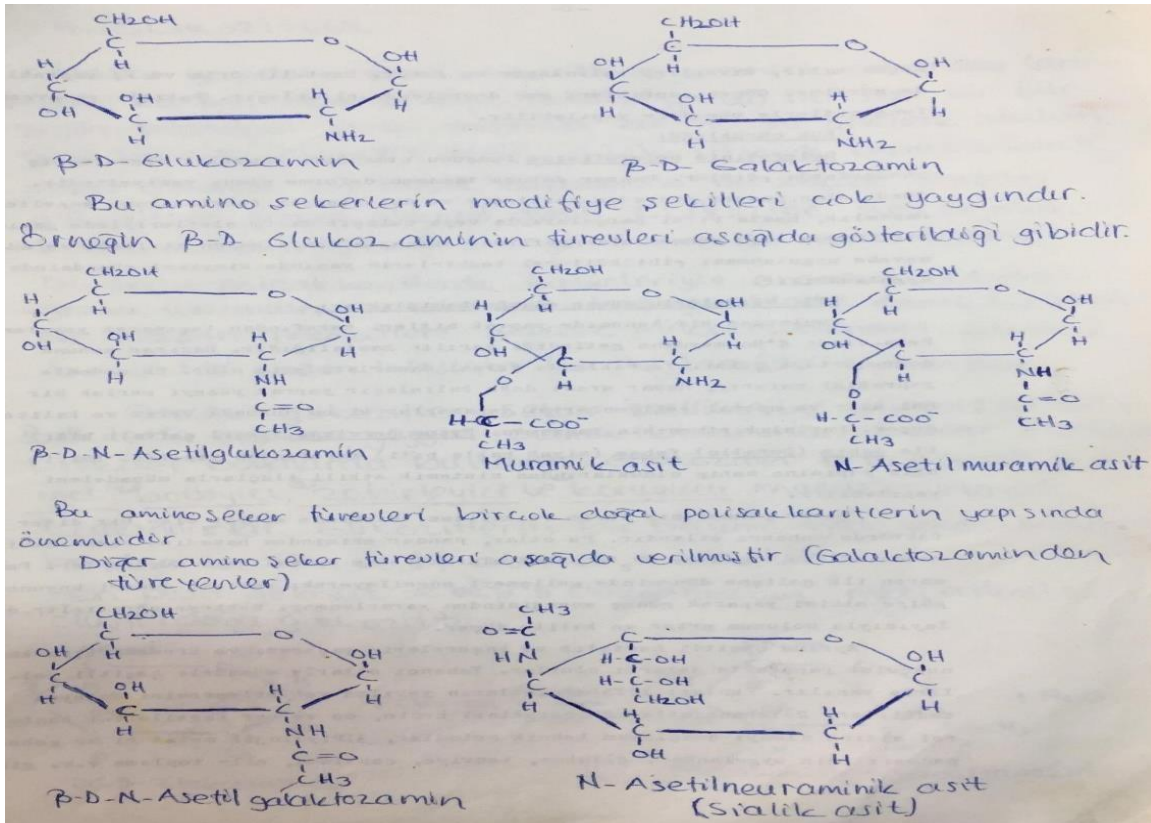 CH2OH
C O
H
H OH
C C
OH OH H H
C C
H NH2
β-D-Glukozamin
CH2OH
C O
OH H OH
C C
H OH H H
C C
H NH2
β-D-Galaktozamin
Bu amino sekerlerin modifiye şekilleri çok yaygındır.
Örneğin β-D Glukoz aminin türevleri aşağıda gösterildiği gibidir.
CH2OH
C O
H H OH
C C
OH OH H H
C C
H NH
C=O
CH3
β-D-N-Asetilglukozamin
CH2OH
C O
H H OH
C C
OH C H H
C
O H NH2
H-C-COO-
CH3
Muramik asit
CH2OH
C O
H H OH
C C
OH H H
C C
O H NH
H-C-COO- C=O
CH3 CH3
N-Asetilmuramik asit
Bu aminoseker türevleri birçok doğal polisakkaritlerin yapısında
önemlidir
Diğer amino şeker türevleri aşağıda verilmiştir (Galaktozaminden
türeyenler)
CH2OH
C O
OH H OH
C C
H OH H H
C C
H NH
C=O
CH3
β-D-N-Asetil galaktozamin
CH3
O=C C O
HN H-C-OH OH
C H-C-OH C
H CH2OH H
H H
C C
OH H
N-Asetilneuraminik asit
(Sialik asit)